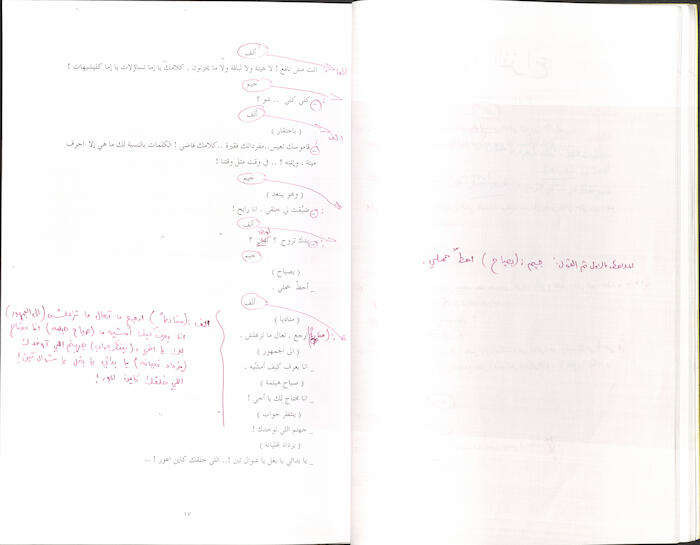 ألف
انت مش نافع ! لا هيئة ولا لباقة ولا ما يحزنون . كلامك يا إما تساؤلات يا إما كليشيهات !
جيم
كفى كفى .. شو ؟
ألف
( باحتقار )
قاموسك تعيس..مفرداتك فقيرة ..كلامك فاضي ! الكلمات بالنسبة لك ما هي إلا احرف
ميتة ، وإمتة ؟ .. في وقت مثل وقتنا !
جيم
( وهو يبتعد )
ضيّقت لي خلقي . انا رايح !
ألف
بدك تروح ؟ ؟
جيم
( بصياح )
_ أحطّ حملي .
ألف
( مناديا )
إرجع . تعال ما تزعلش .
( الى الجمهور )
_ انا بعرف كيف أمشّيه .
( صياح هيلمة )
_ انا محتاج لك يا أخي !
( ينتظر جواب )
_ جهنم اللي توخدك !
( يزداد غليانه )
_ يا بدائي يا بغل يا شوال تبن !.. اللي خلقك كاين اعور ! ..
الف : (مناديا) ارجع ما تعال ما تزعلش (الى الجمهور)
انا بعرف كيف أمشيه ما (صياح هيلمة) انا محتاج
لك يا اخي ، (ينتظر جواب) جهنم اللي توخدك
(يزداد غليانه) يا بدائي يا بغل يا شوال تبن !
اللي خلقك كاين اعور !
١٧
جيم : (بصياح) احطّ حملي .